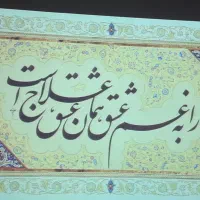 را به غم عشق همان عشق علاج است